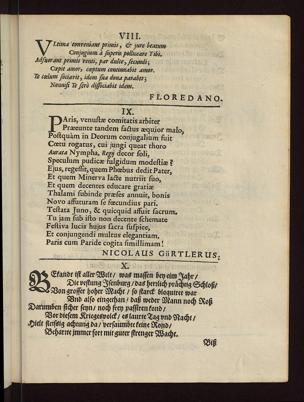 VIII.
VLtima conveniant primis, & jure beatum
Conjugium à superis polliceare Tibi.
Adfuerant primis venti, par dulce, secundi;
Cupit amor, captum concinnabit amor.
Te cœlum sociavit, idem sua dona parabit;
Nexus Te serò dissociabit idem.
FLOREDANO.
IX.
PAris, venustæ comitatis arbiter
Præeunte tandem factus æquior malo,
Postquàm in Deorum conjugalium fuit
Cœtu rogatus, cui jungi queat thoro
Aurata Nympha, Regi decor soli,
Speculum pudicæ fulgidum modestiæ?
Ejus, regessit, quem Phœbus dedit Pater,
Et quem Minerva lacte nutriit suo,
Et quem decentes educare gratiæ
Thalami subinde præses annuit, bonis
Novo affuturam se fœcundius pari.
Testata Juno, & quicquid affuit sacrum.
Tu jam sub isto non decente schemate
Festiva lucis hujus sacra suspice,
Et conjungendi multus elegantiam,
Paris cum Paride cogita simillimam!
NICOLAUS GöRTLERUS;
X.
BEkandt ist aller Welt/ was massen bey eim Jahr/
Die vestung Jsenburg/ das herzlich prächtig Schloß/
Von grosser hoher Macht/ so starck bloquiret war
Und also eingethan/ daß weder Mann noch Roß
Darumben sicher seyn/ noch frey passiren kond/
Vor diesem Kriegsvolck/ es laurte Tag vnd Nacht/
Hielt fleissig achtung da/ versäumbt keine Rond/
Beharrte jmmer fort mit guter strenger Wacht.
Biß